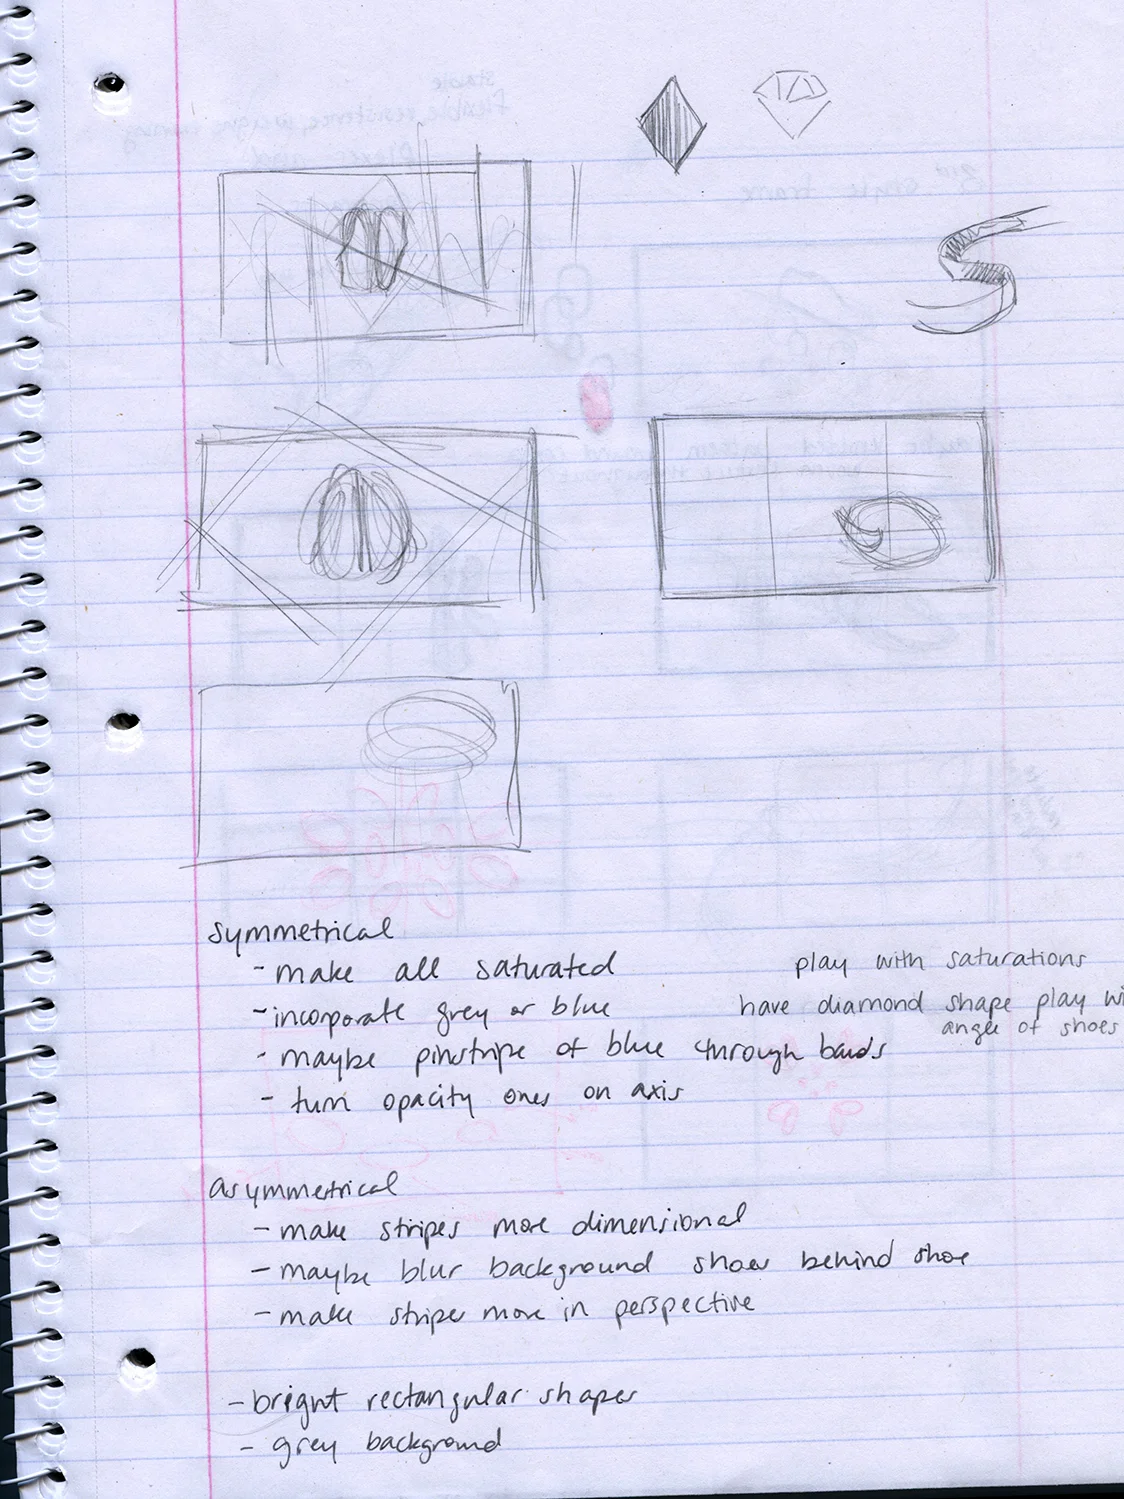 symmetrical
- make all saturated
- incorporate grey or blue
- maybe pinstripe of blue through bands
- turn opacity ones on axis
play with saturations
have diamond shape play wi
angle of shoes
asymmetrical
- make stripes more dimensional
- maybe blur background shoes behind shoe
- make stripes more in perspective
- bright rectangular shapes
- grey background